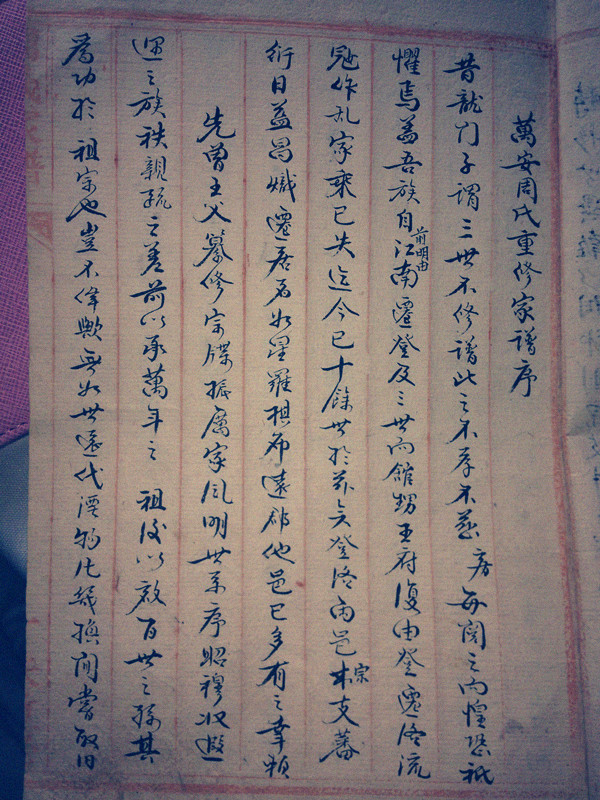 萬安周氏重修家譜序
昔龍门子謂三世不修譜比之不孝不慈 房每閱之而惶恐祗
懼焉蓋吾族自前明由江南遷登及三世而館甥王府復由登遷洛流
冦作乱家乘已失迄今已十餘世於茲矣登洛両邑本宗支蕃
衍日益昌熾遷居者如星羅棋布遠郡他邑已多有之幸頼
先曾王父纂修宗牒振厲家風明世系序昭穆収遐
迩之族秩親疏之差前以承萬年之 祖後以啟百世之孫其
為功於 祖宗也豈不偉歟無如世遠代湮物化幾換間嘗取旧